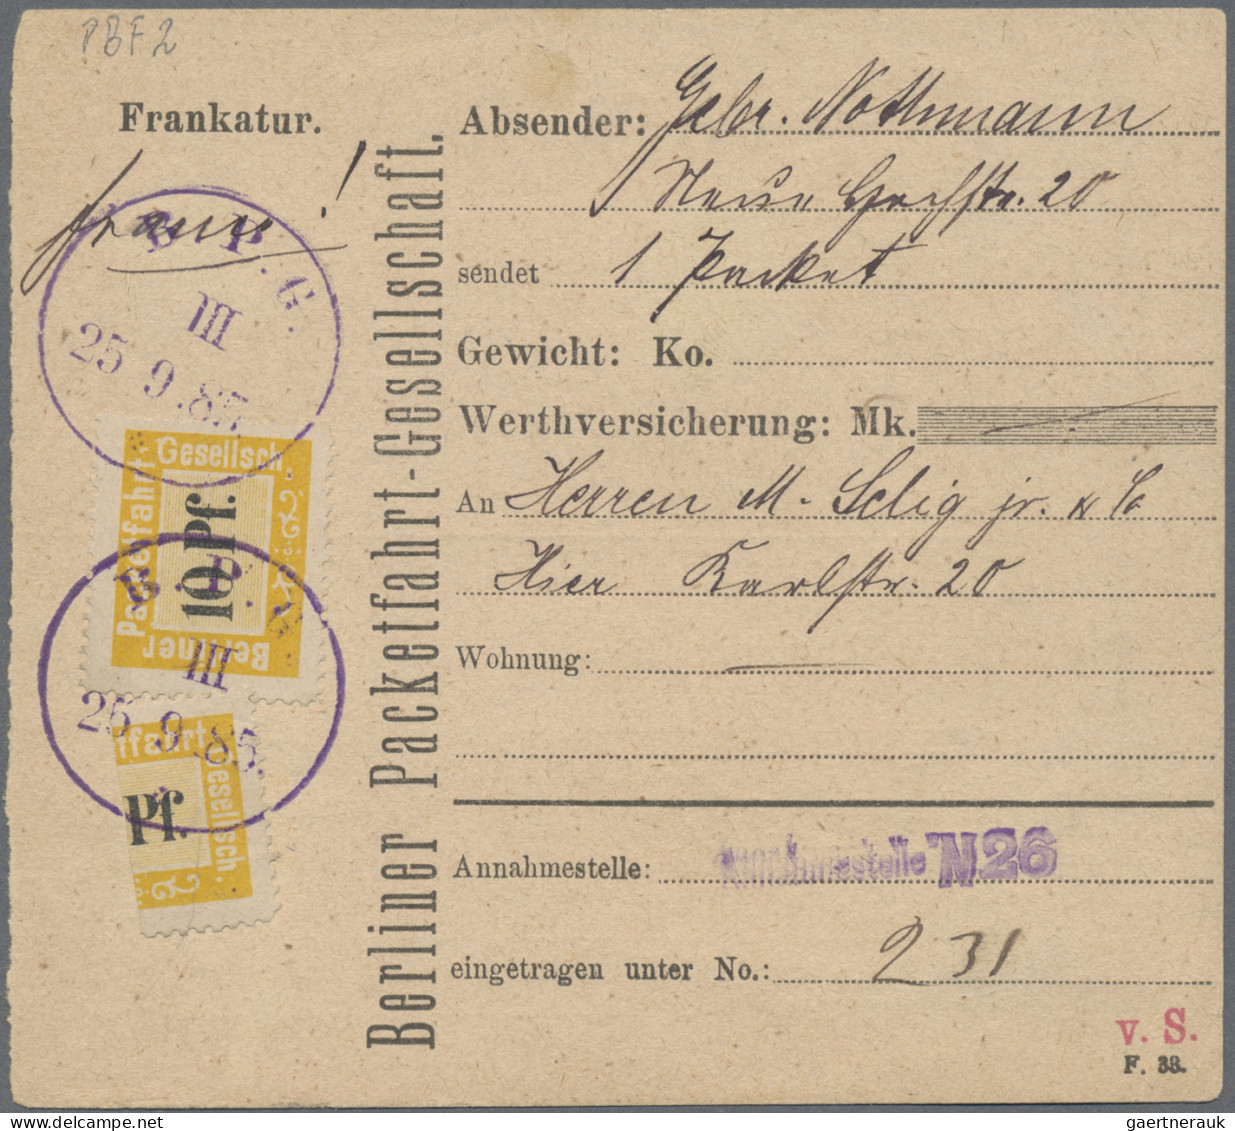 PBF2
Frankatur.
franco!
B. P. G.
III
25 9.85.
Packetfahrt-
Gesellsch.
Berliner
10 Pf.
B. P. G.
III
25 9.85.
ffahrt
Gesellsch.
Pf.
Berliner Packetfahrt-Gesellschaft.
Absender: Gebr. Nothmann
Neue Hochstr. 20
sendet 1 Packet
Gewicht: Ko.
Werthversicherung: Mk.
An Herren M. Selig jr. & Co
Hier Karlstr. 20
Wohnung:
Annahmestelle: Annahmestelle N26
eingetragen unter No.: 231
v. S.
F. 38.
gaertnerauk